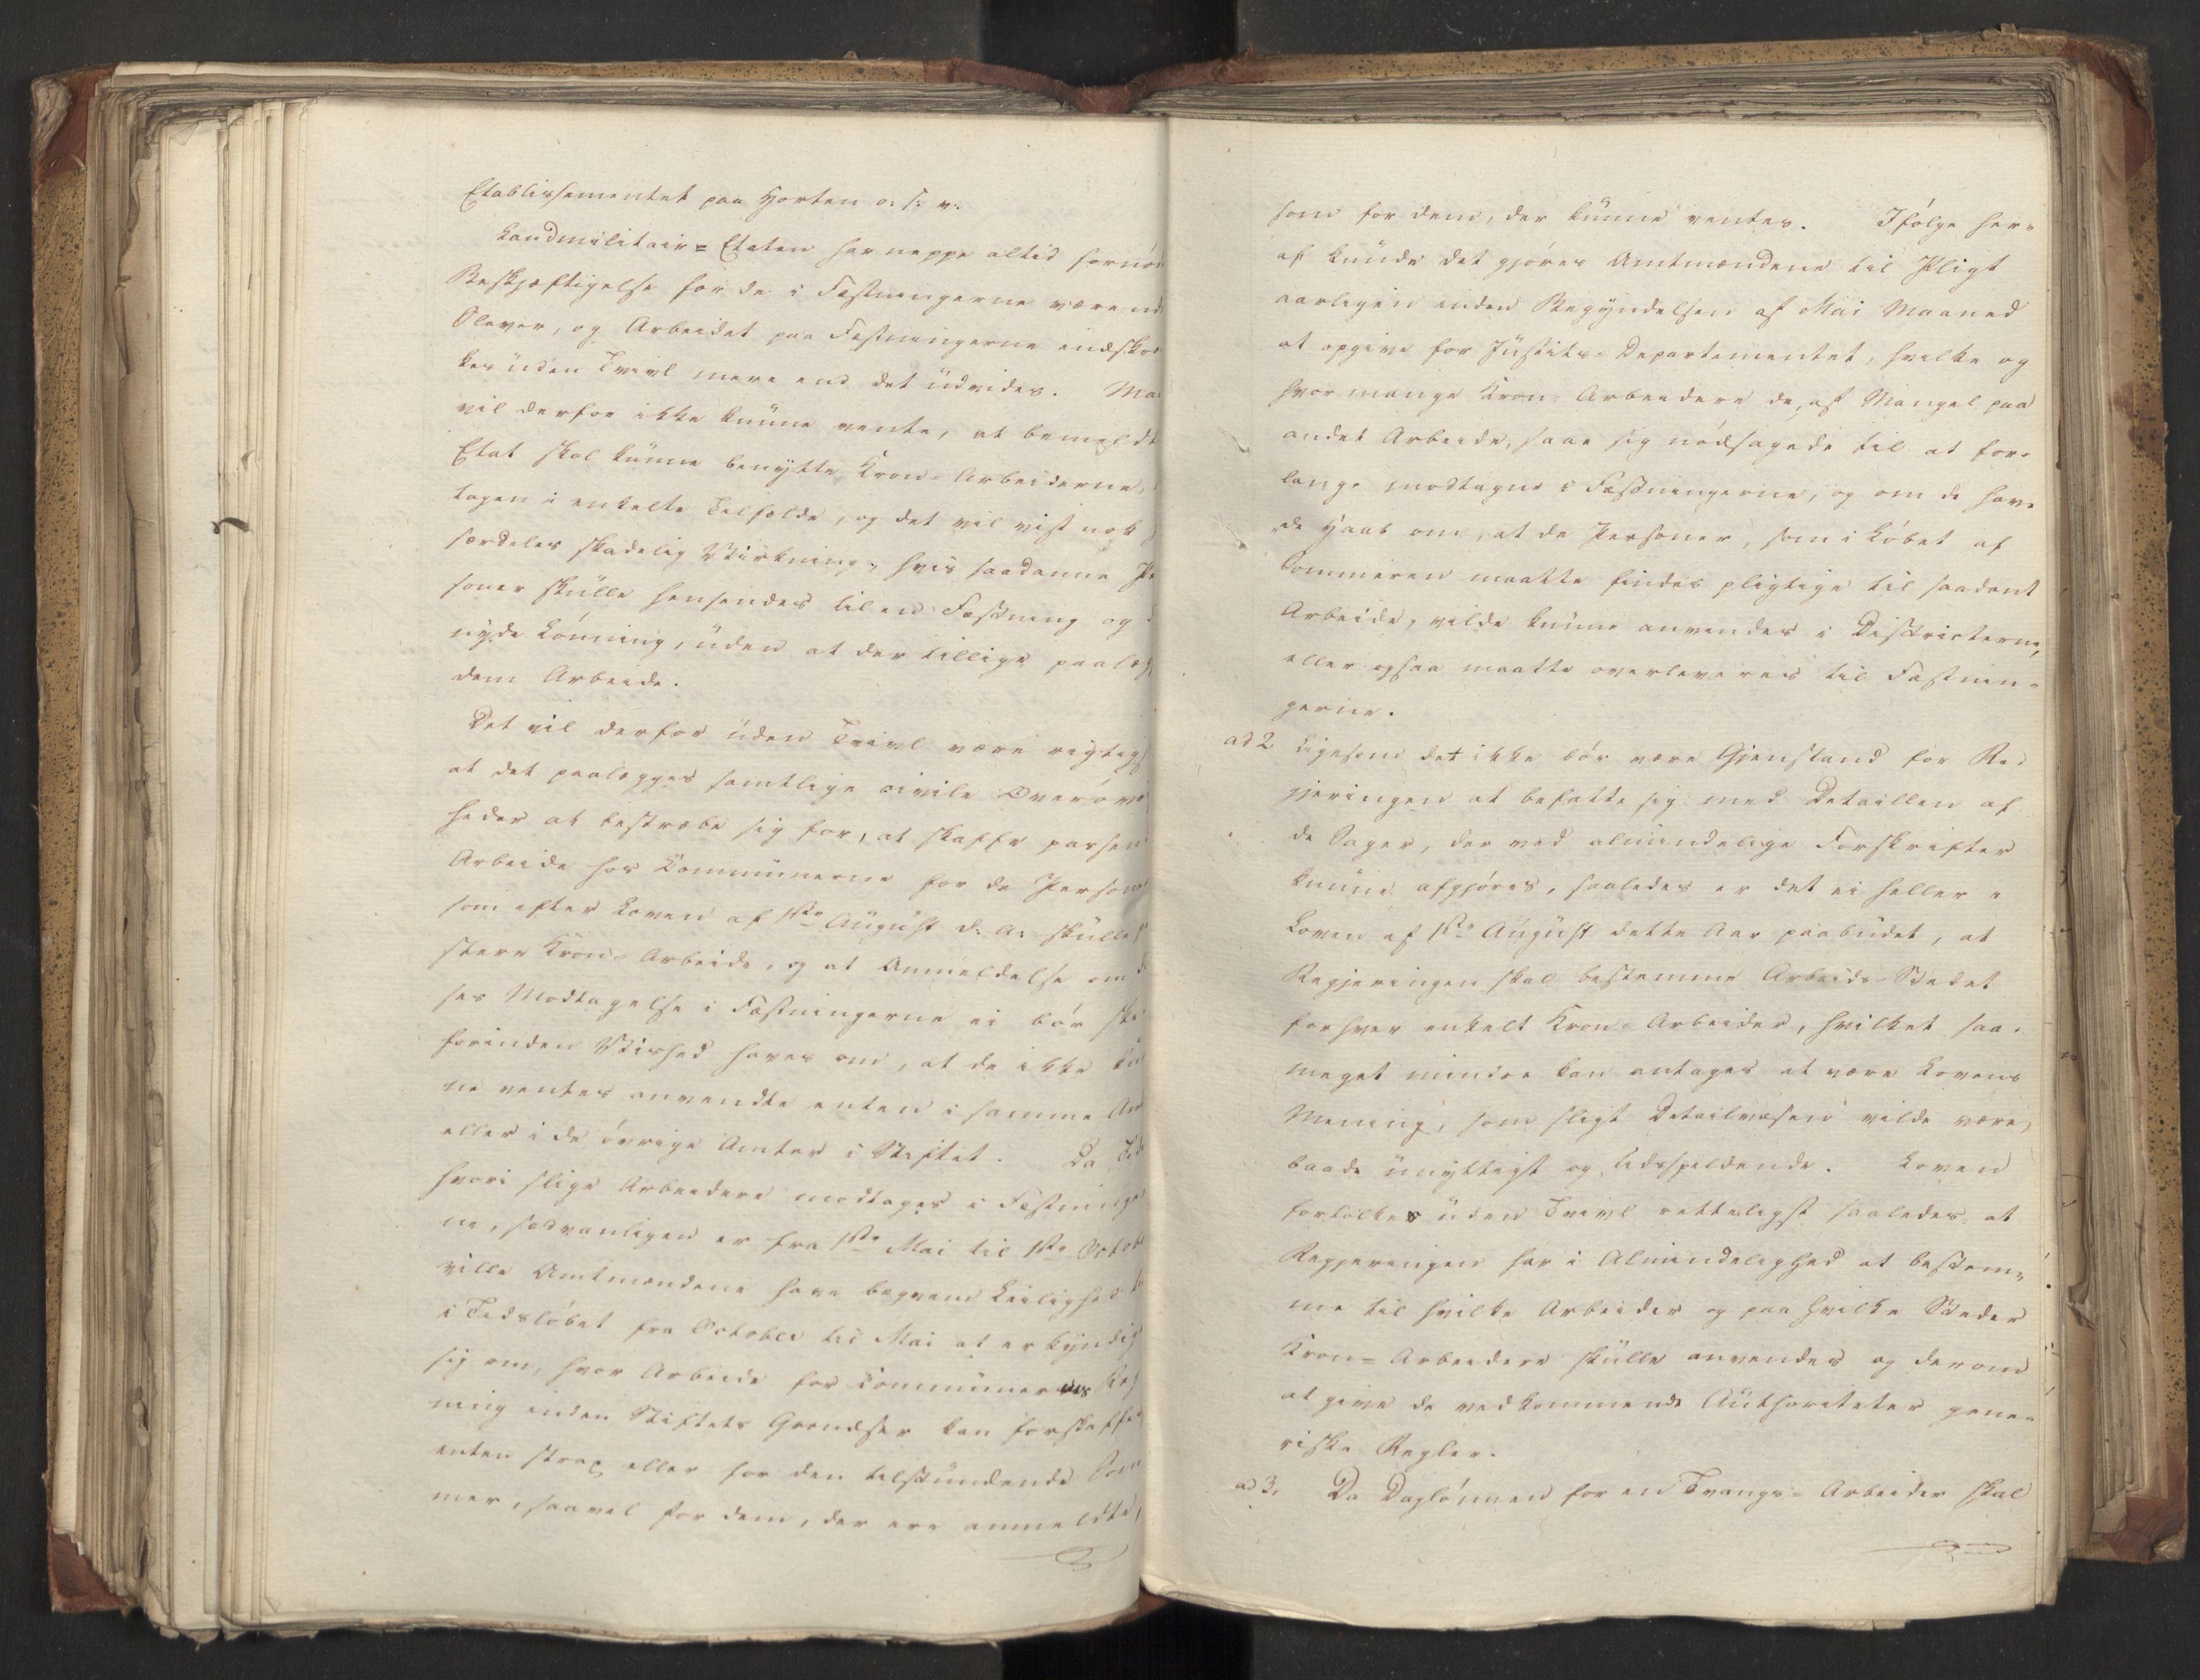 Etablissementet paa Horten o: s: v:
Landmilitair=Etaten har neppe altid fornød
Beskjæftigelse for de i Fæstningerne værende
Slaver, og Arbeidet paa Fæstningerne indskræn
kes uden Tvivl mere end det udvides. Ma
vil derfor ikke kunne vente, at bemeldt
Etat skal kunne benytte Kron-Arbeiderne,
tagen i enkelte Tilfælde, og det vil vist nok
særdeles skadelig Virkning, hvis saadanne Pe
soner skulle hensendes til en Fæstning og
nyde Lønning, uden at der tillige paalæg
dem Arbeide.
Det vil derfor uden Tvivl være rigtigs
at det paalægges samtlige civile Overøvrig
heder at bestræbe sig for, at skaffe passen
Arbeide hos Kommunerne for de Persone
som efter Loven af 1ste August d: A: skulle
stere Kron-Arbeide, og at Anmeldelse om de
ses Modtagelse i Fæstningerne ei bør ske
forinden Vished haves om, at de ikke kun
ne ventes anvendte enten i samme Am
eller i de øvrige Amter i Stiftet. Da Tid
hvori slige Arbeidere modtages i Fæstninger
ne, sædvanligen er fra 1ste Mai til 1ste Octobe
ville Amtmændene have beqvem Leilighed
i Tidsløbet fra October til Mai at erkyndig
sig om, hvor Arbeide for Communernes Reg
ning inden Stiftets Grændser kan forskaffes
enten strax eller for den tilstundende Som
mer, saavel for dem, der ere anmeldte,
som for dem, der kunne ventes. Ifølge her-
af kunde det gjøres Amtmændene til Pligt
aarligen inden Begyndelsen af Mai Maaned
at opgive for Justits-Departementet, hvilke og
hvor mange Kron-Arbeidere de, af Mangel paa
andet Arbeide, saae sig nødsagede til at for-
lange modtagne i Fæstningerne, og om de hav-
de Haab om, at de Personer, som i Løbet af
Sommeren maatte findes pligtige til saadant
Arbeide, vilde kunne anvendes i Districterne,
eller ogsaa maatte overleveres til Fæstnin-
gerne.
ad 2 Ligesom det ikke bør være Gjenstand for Re-
gjeringen at befatte sig med Detaillen af
de Sager, der ved almindelige Forskrifter
kunne afgjøres, saaledes er det ei heller i
Loven af 1ste August dette Aar paabudet, at
Regjeringen skal bestemme Arbeids-Stedet
for hver enkelt Kron-Arbeider, hvilket saa-
meget mindre kan antages at være Lovens
Mening, som sligt Detailvæsen vilde være
baade unyttigt og tidsspildende. Loven
fortolkes uden Tvivl retteligst saaledes, at
Regjeringen har i Almindelighed at bestem-
me til hvilke Arbeider og paa hvilke Steder
Kron=Arbeidere skulle anvendes og derom
at give de vedkommende Authoriteter gene-
riske Regler.
ad 3, Da Daglønnen for en Tvangs-Arbeider skal